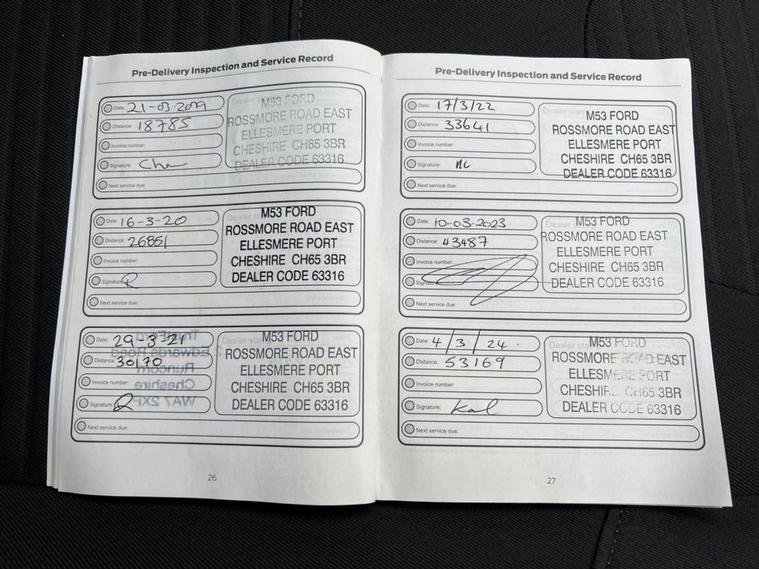 Pre-Delivery Inspection and Service Record
Date: 21-03-2019
Distance: 18785
Invoice number:
Signature:
Next service due:
M53 FORD
ROSSMORE ROAD EAST
ELLESMERE PORT
CHESHIRE CH65 3BR
DEALER CODE 63316
Date: 16-3-20
Distance: 26851
Invoice number:
Signature:
Next service due:
M53 FORD
ROSSMORE ROAD EAST
ELLESMERE PORT
CHESHIRE CH65 3BR
DEALER CODE 63316
Date: 29-3-21
Distance: 30170
Invoice number:
Signature:
Next service due:
M53 FORD
ROSSMORE ROAD EAST
ELLESMERE PORT
CHESHIRE CH65 3BR
DEALER CODE 63316
26
Pre-Delivery Inspection and Service Record
Date: 17/3/22
Distance: 33641
Invoice number:
Signature:
Next service due:
M53 FORD
ROSSMORE ROAD EAST
ELLESMERE PORT
CHESHIRE CH65 3BR
DEALER CODE 63316
Date: 10-03-2023
Distance: 43487
Invoice number:
Next service due:
M53 FORD
ROSSMORE ROAD EAST
ELLESMERE PORT
CHESHIRE CH65 3BR
DEALER CODE 63316
Date: 4/3/24.
Distance: 53169
Invoice number:
Signature: Kal
Next service due:
M53 FORD
ROSSMORE ROAD EAST
ELLESMERE PORT
CHESHIRE CH65 3BR
DEALER CODE 63316
27